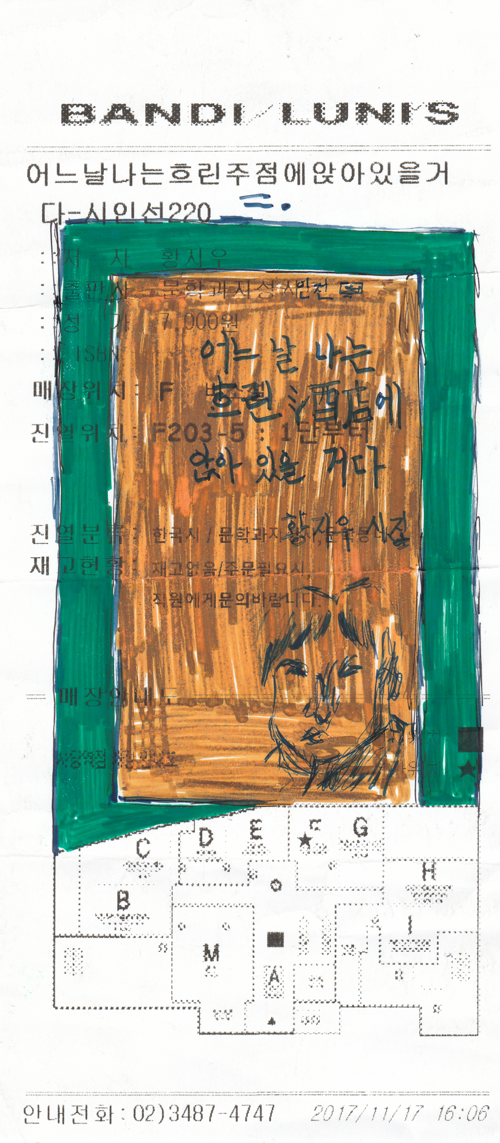 BANDI/LUNI'S
어느날나는흐린주점에앉아있을거
다-시인선220
: 저 자 : 황지우
: 출판사 : 문학과지성사
: 정 가 : 7,000원
: ISBN
어느 날 나는
매장위치 : F
흐린 酒店에
진열위치 : F203-5 : 1단부터
앉아 있을 거다
황지우 시집
진열분류 : 한국시 / 문학과지
재고현황 : 재고없음/주문필요시
직원에게문의바랍니다.
매장안내도
C D E F G
B H
M A I
안내전화:02)3487-4747 2017/11/17 16:06